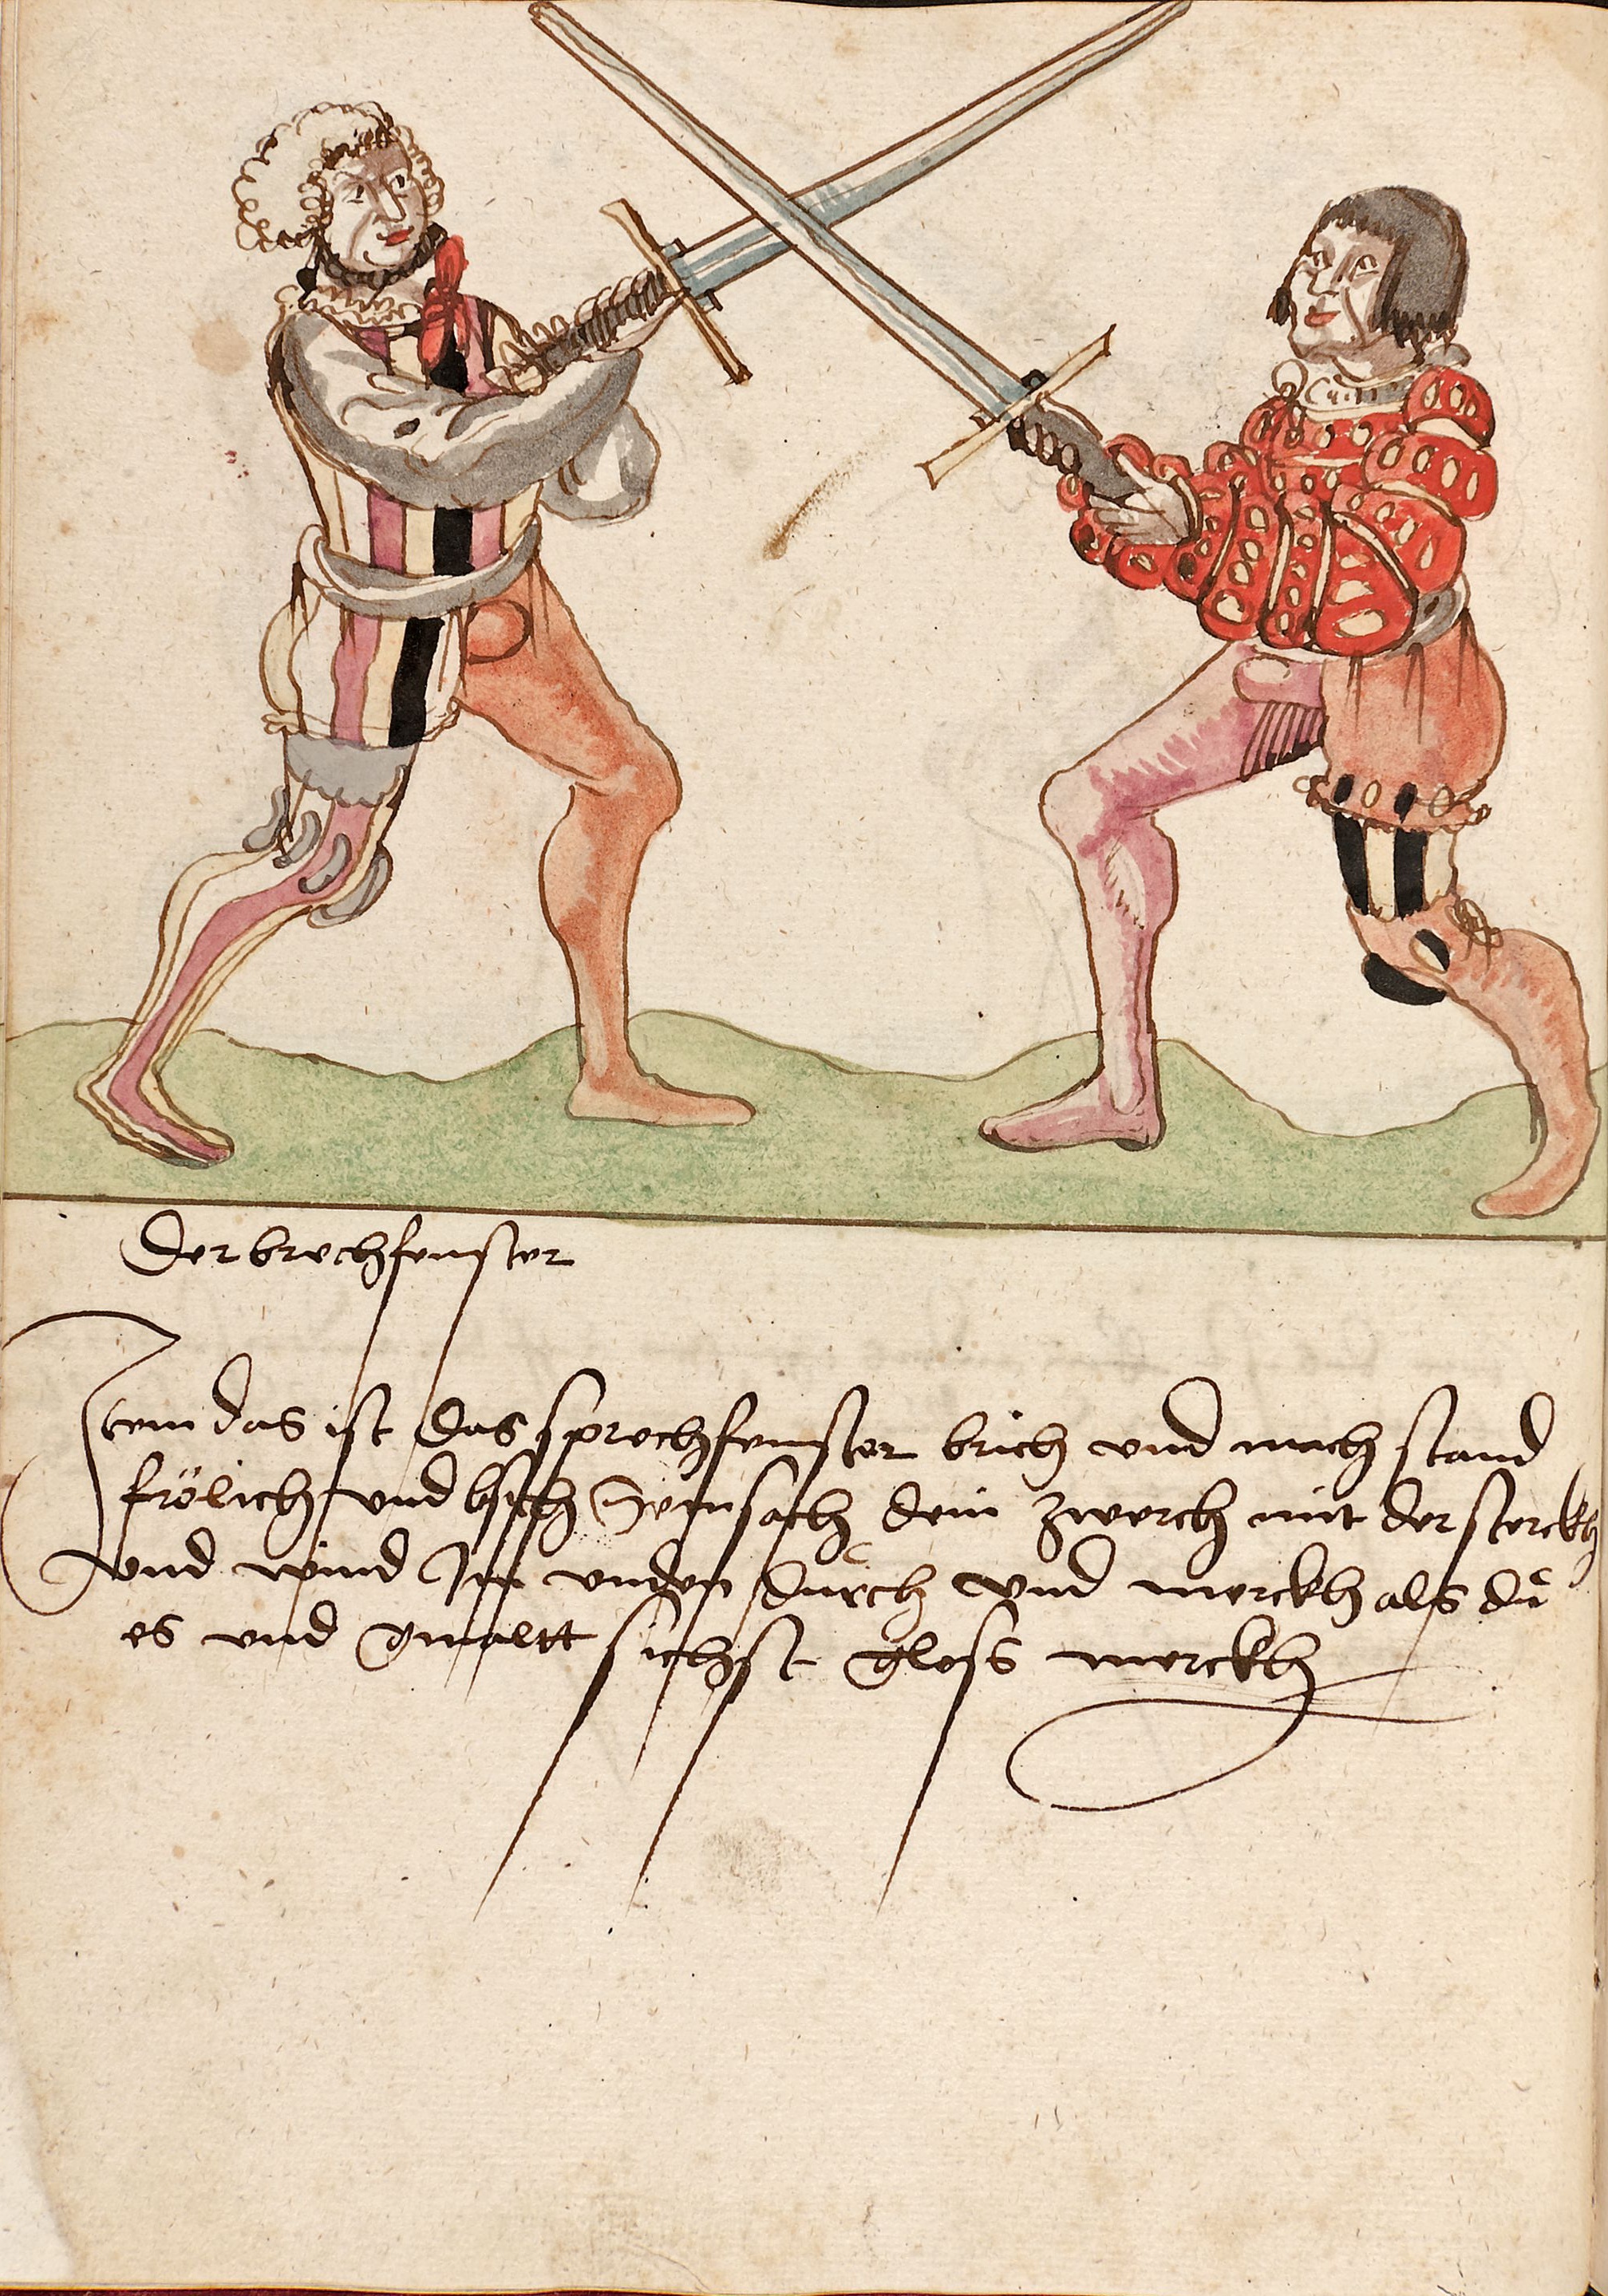 Der brechfenster
Item das ist das sprechfenster brich vnd mach stand
frölich vnd bsich sein sach dein zwerch mit der sterckh
vnd wind Im vnden durch vnd merckh als du
es vnd gmaltt sichst gloss merckh